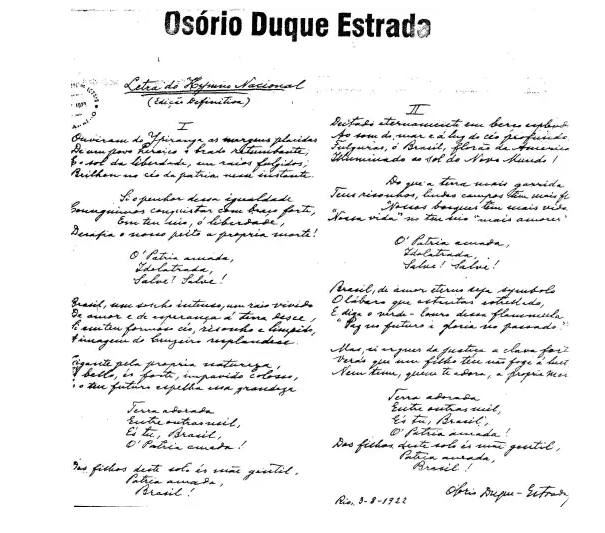 Osório Duque Estrada
Letra do Hymno Nacional
(Edição definitiva)
I
Ouviram do Ypiranga as margens placidas
De um povo heroico o brado retumbante,
E o sol da liberdade, em raios fulgidos,
Brilhou no céo da patria nesse instante.
Si o penhor dessa igualdade
Conseguimos conquistar com braço forte,
Em teu seio, ó liberdade,
Desafia o nosso peito a propria morte!
O' Patria amada,
Idolatrada,
Salve! Salve!
Brasil, um sonho intenso, um raio vivido
De amor e de esperança á terra desce,
E em teu formoso céo, risonho e limpido,
A imagem do Cruzeiro resplandece.
Gigante pela propria natureza,
És bello, és forte, impavido colosso,
E o teu futuro espelha essa grandeza
Terra adorada
Entre outras mil,
És tu, Brasil,
O' Patria amada!
Dos filhos deste solo és mãe gentil,
Patria amada,
Brasil!
II
Deitado eternamente em berço esplend
Ao som do mar e á luz do céo profundo,
Fulguras, ó Brasil, florão da America
Illuminado ao sol do Novo Mundo!
Do que a terra mais garrida
Teus risonhos, lindos campos têm mais fl
"Nossos bosques têm mais vida
"Nossa vida" no teu seio "mais amores"
O' Patria amada,
Idolatrada,
Salve! Salve!
Brasil, de amor eterno seja symbolo
O lábaro que ostentas estrellado,
E diga o verde-louro dessa flammula
"Paz no futuro e gloria no passado."
Mas, si ergues da justiça a clava fort
Verás que um filho teu não foge á lut
Nem teme, quem te adora, a propria mor
Terra adorada
Entre outras mil,
És tu, Brasil,
O' Patria amada!
Dos filhos deste solo és mãe gentil,
Patria amada,
Brasil!
Rio, 3-8-1922
Osorio Duque-Estrada